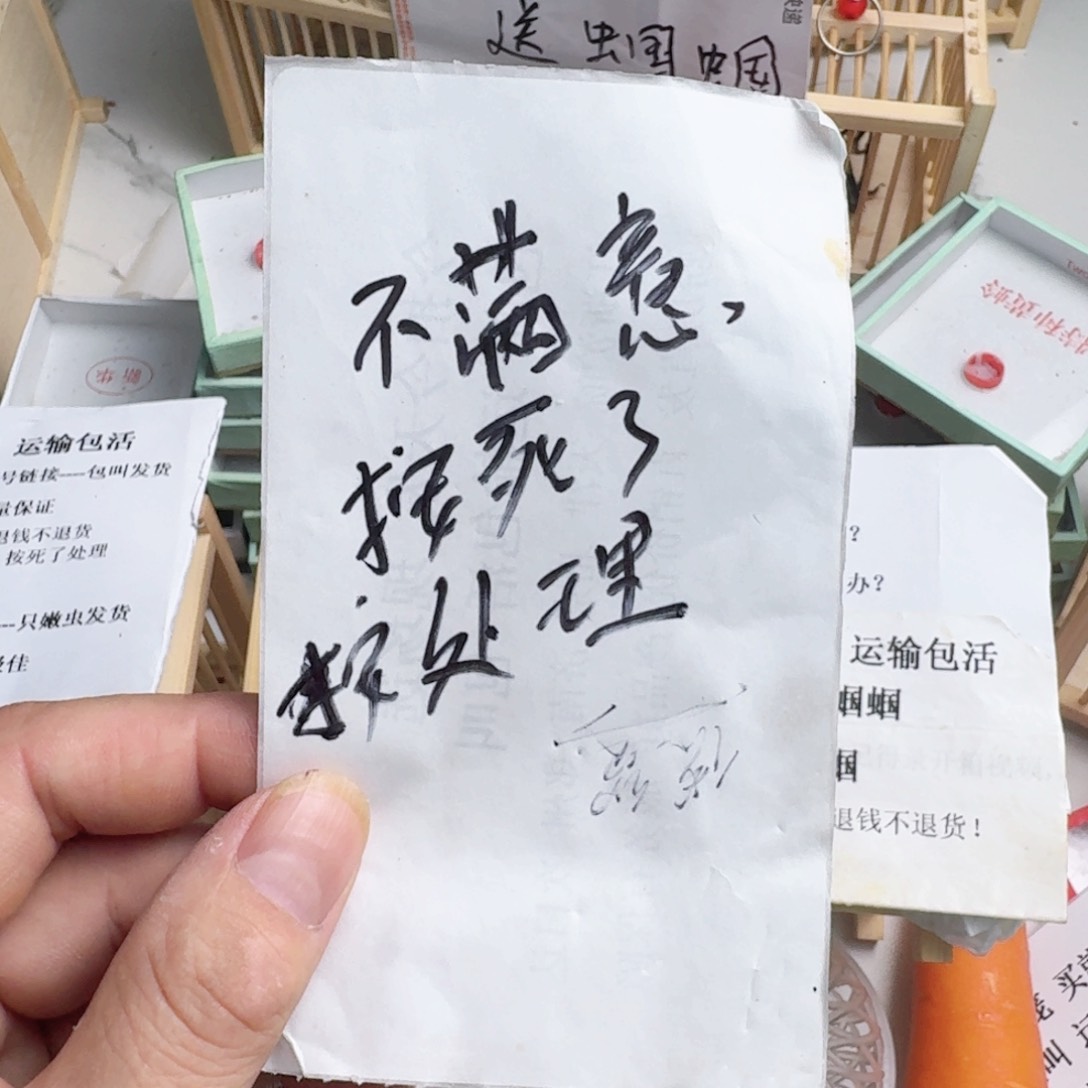 送 蝈 蝈
不满意,
按死了
处理
新华
运输包活
号链接----包叫发货
量保证
退钱不退货
按死了处理
--只嫩虫发货
佳
?
办?
运输包活
蝈蝈
蝈
退钱不退货!
买
叫